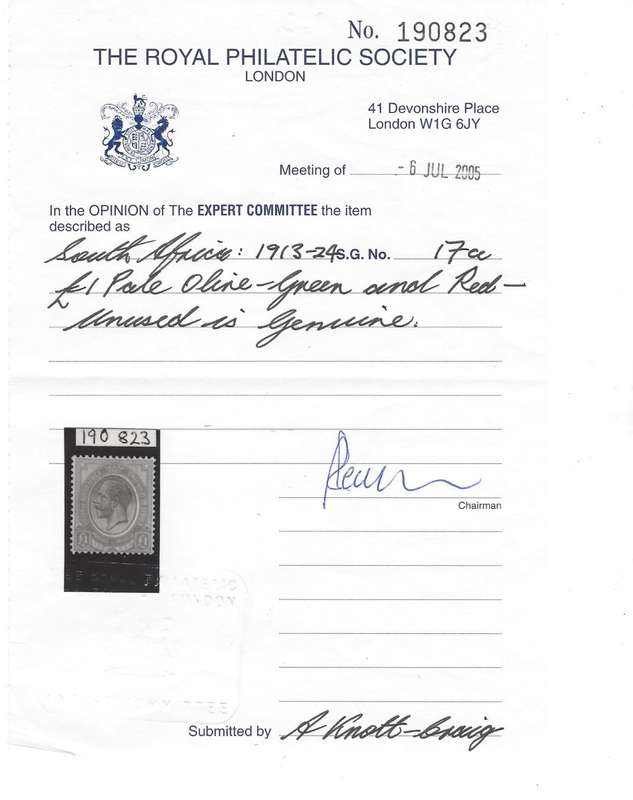 No. 190823
THE ROYAL PHILATELIC SOCIETY
LONDON
41 Devonshire Place
London W1G 6JY
Meeting of - 6 JUL 2005
In the OPINION of The EXPERT COMMITTEE the item
described as
South Africa: 1913-24 S.G. No. 17a
£1 Pale Olive-Green and Red-
Unused is Genuine.
190 823
£1 £1
Chairman
Submitted by A Knott-Craig